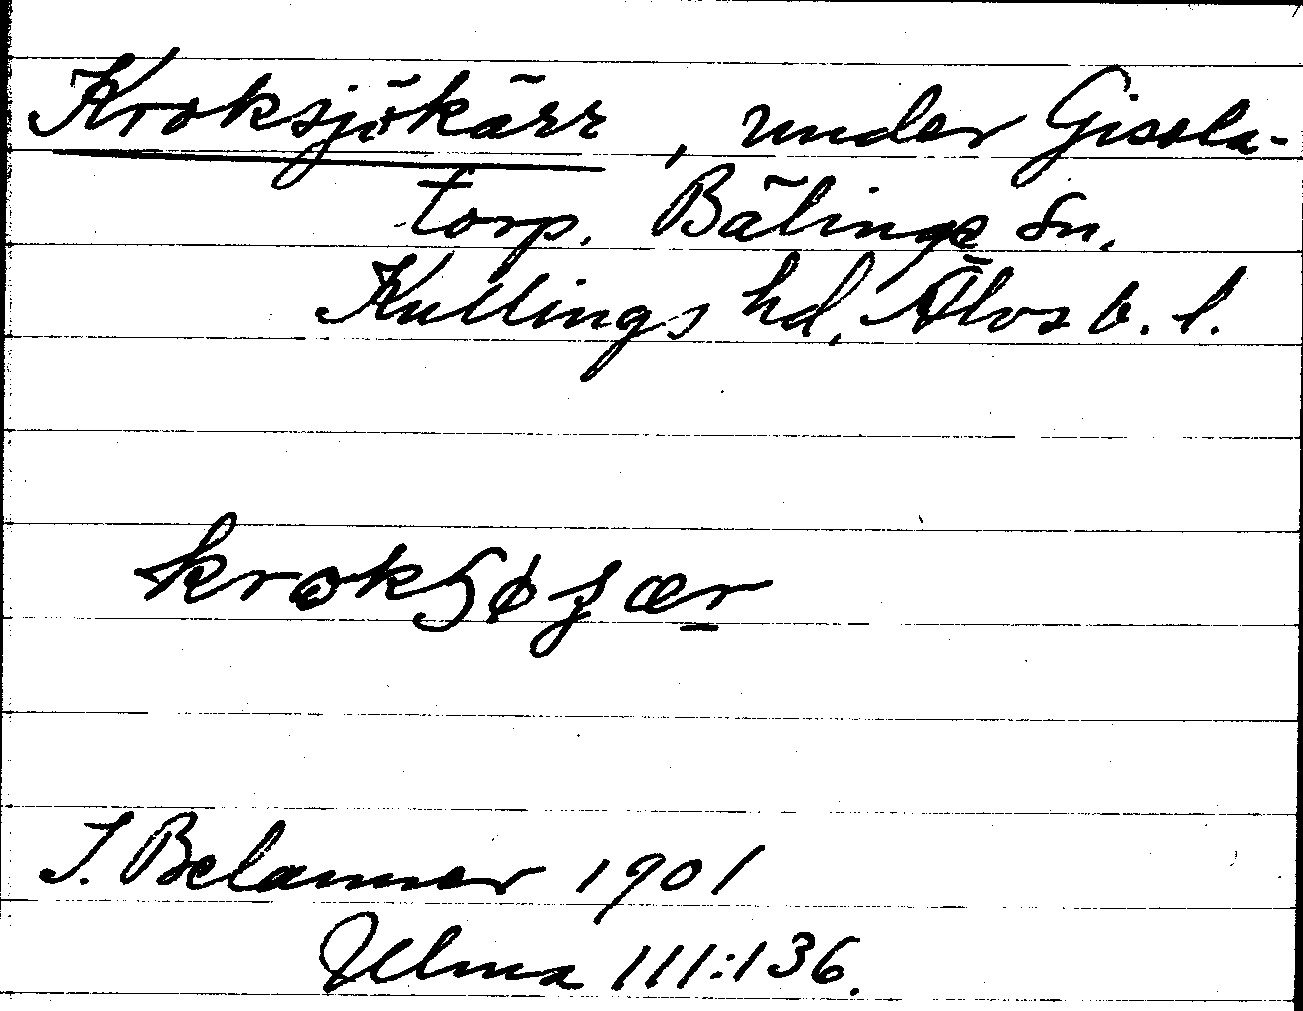 Kroksjökärr, under Gisela-
torp. Bälinge Sn.
Kullings hd, Älvsb. l.
krokɧøʒær
J. Belanner 1901
Ulma 111:136.